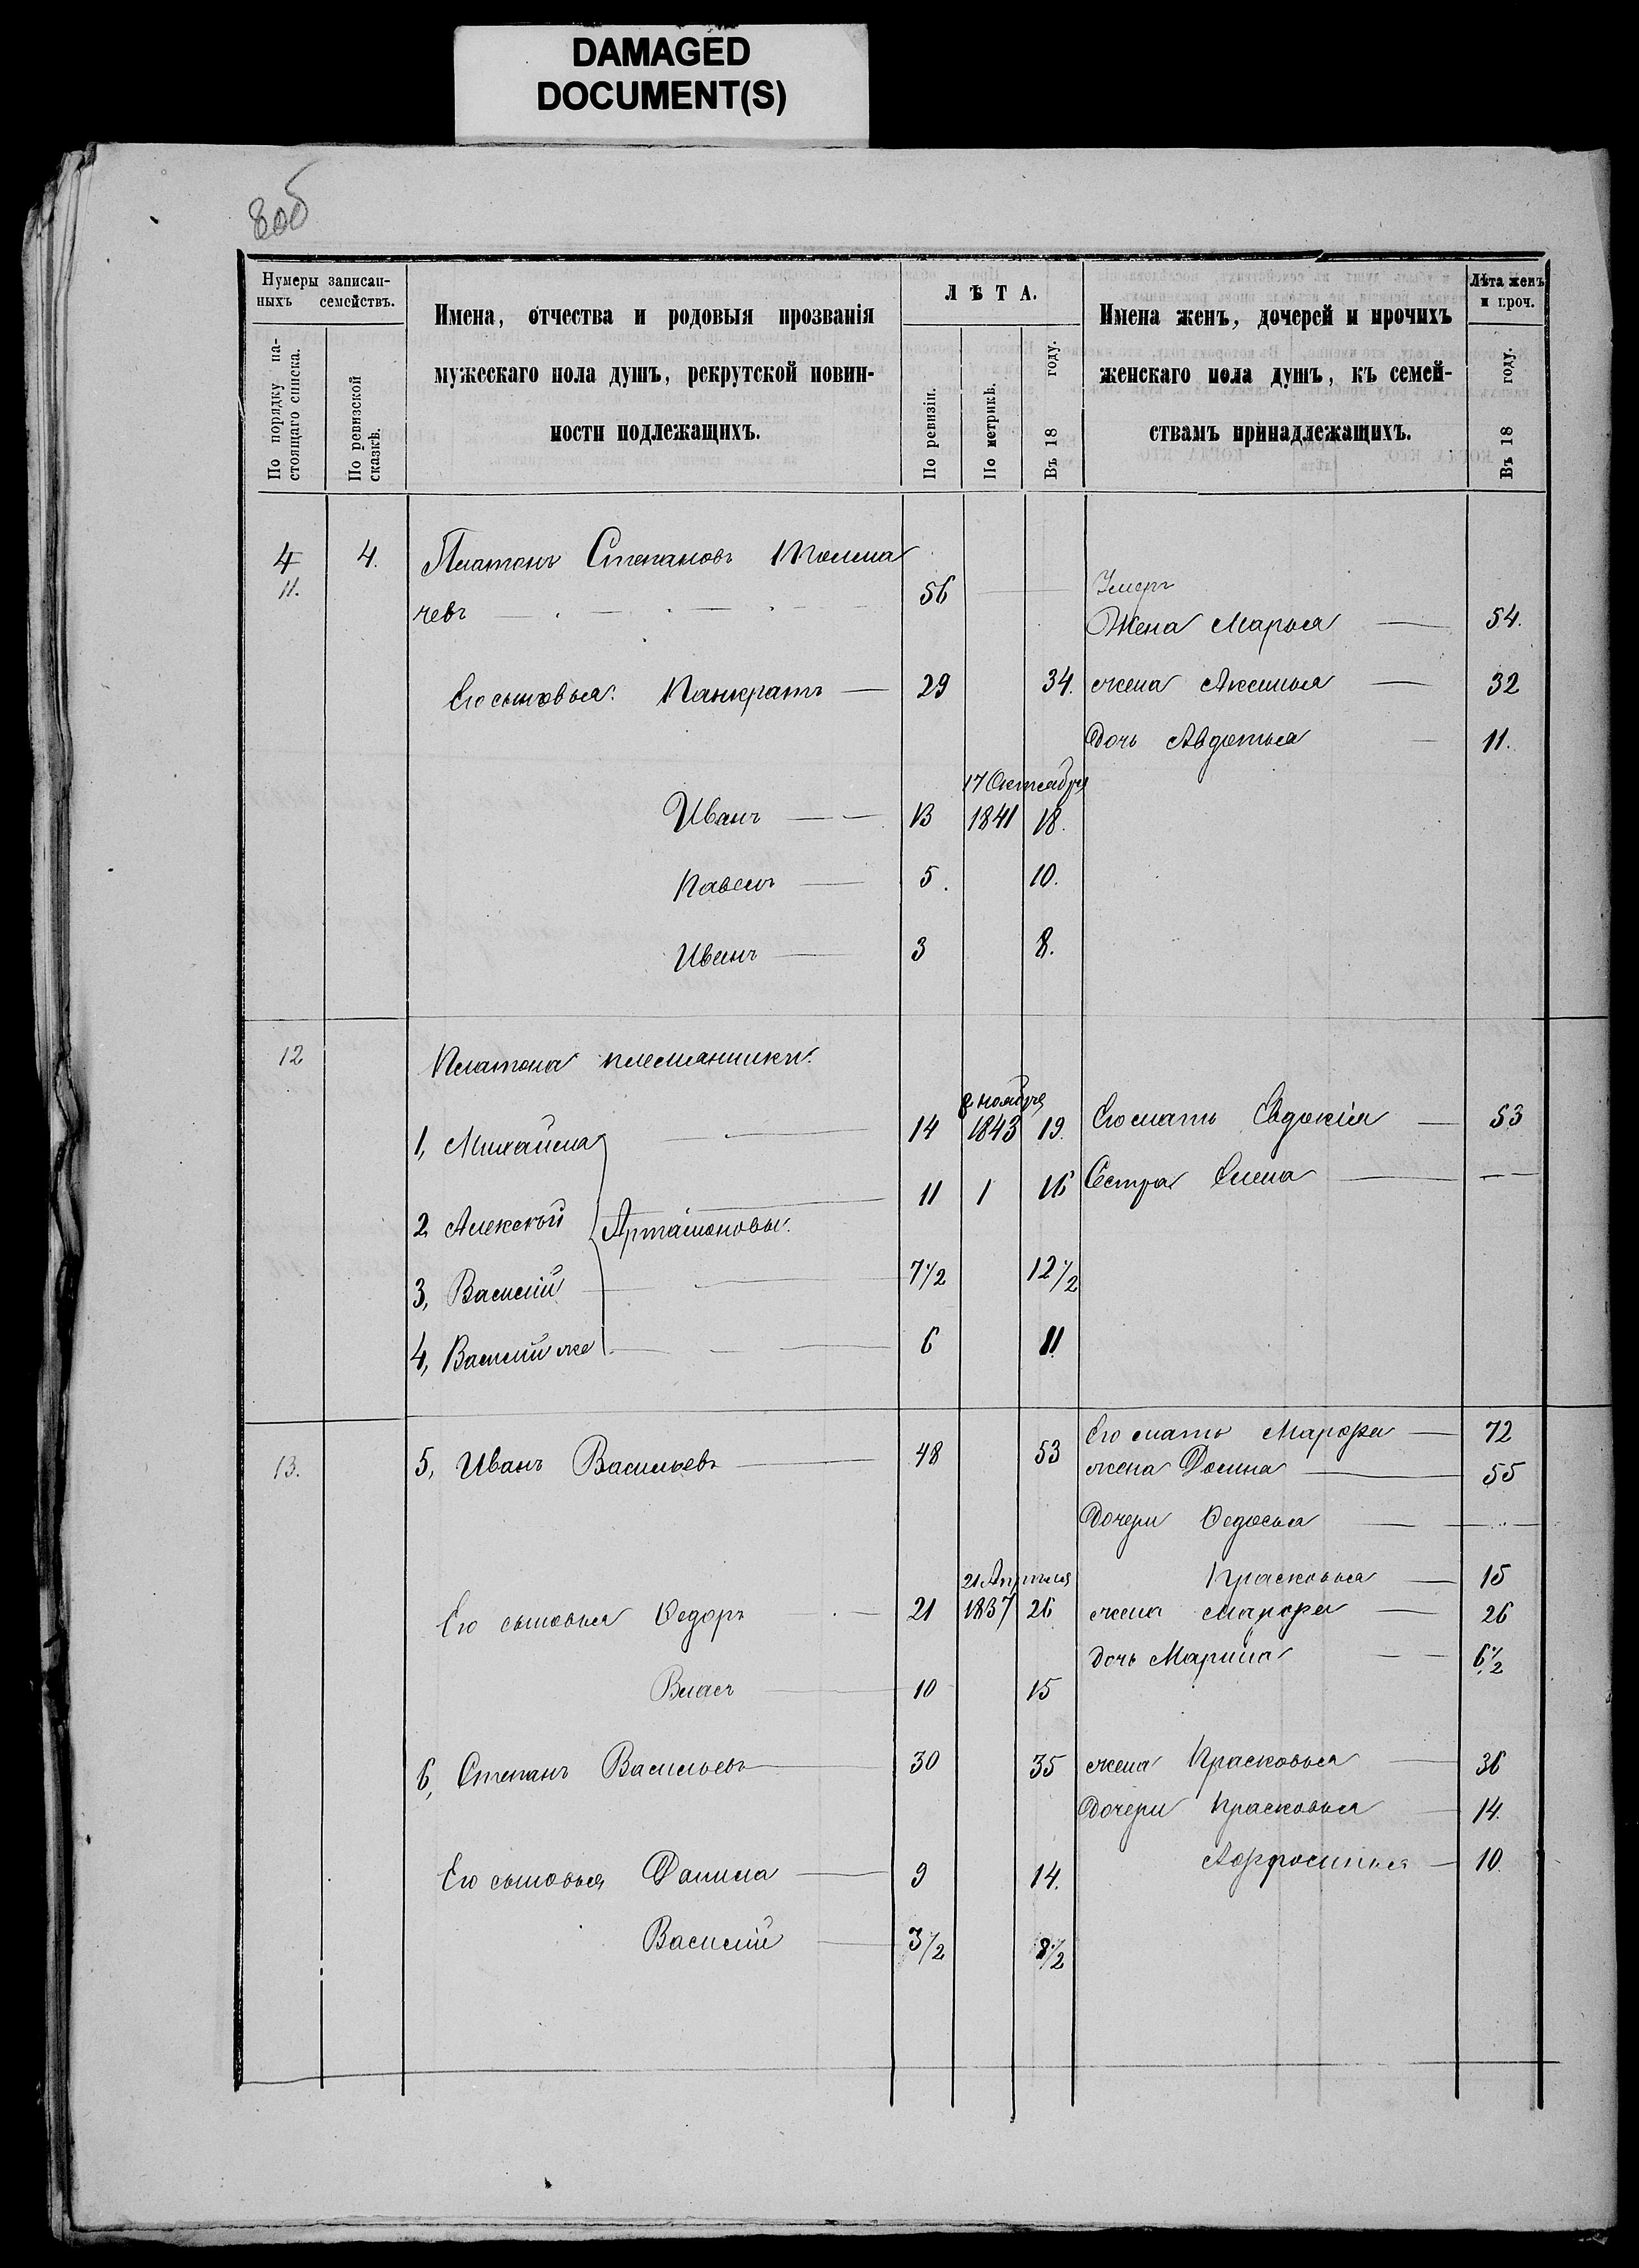 DAMAGED
DOCUMENT(S)
80об
Нумеры записан-
ныхъ семействъ.
По порядку на-
стоящаго списка.
По ревизской
сказкѣ.
Имена, отчества и родовыя прозванія
мужескаго пола душъ, рекрутской повин-
ности подлежащихъ.
ЛѢТА.
По ревизіи.
По метрикѣ.
Въ 18 году.
Имена женъ, дочерей и прочихъ
женскаго пола душъ, къ семей-
ствамъ принадлежащихъ.
Лѣта женъ
и проч.
Въ 18 году.
4 4. Платонъ Степановъ Толма
11. чевъ 56 Умеръ
Жена Марья 54.
Его сыновья: Панкратъ 29 34. жена Аксинья 32
Дочь Авдотья 11.
17 Октября
Иванъ 13 1841 18.
Павелъ 5. 10.
Иванъ 3 8.
12 Платона племянники:
8 ноября
1, Михайла 14 1843 19. Его мать Евдокія 53
11 1 16 Сестра Елена
2, Алексѣй Артамоновы.
3, Василій 7 1/2 12 1/2
4, Василій же 6 11
13. 5, Иванъ Васильевъ 48 53 Его мать Марфа 72
жена Домна 55
Дочери Ѳедосья
21 Апрѣля Прасковья 15
Его сыновья Ѳедоръ 21 1837 26 жена Марфа 26
дочь Марина 6 1/2
Власъ 10 15
6, Степанъ Васильевъ 30 35 жена Прасковья 36
Дочери Прасковья 14.
Афросинья 10.
Его сыновья Данила 9 14.
Василій 3 1/2 8 1/2